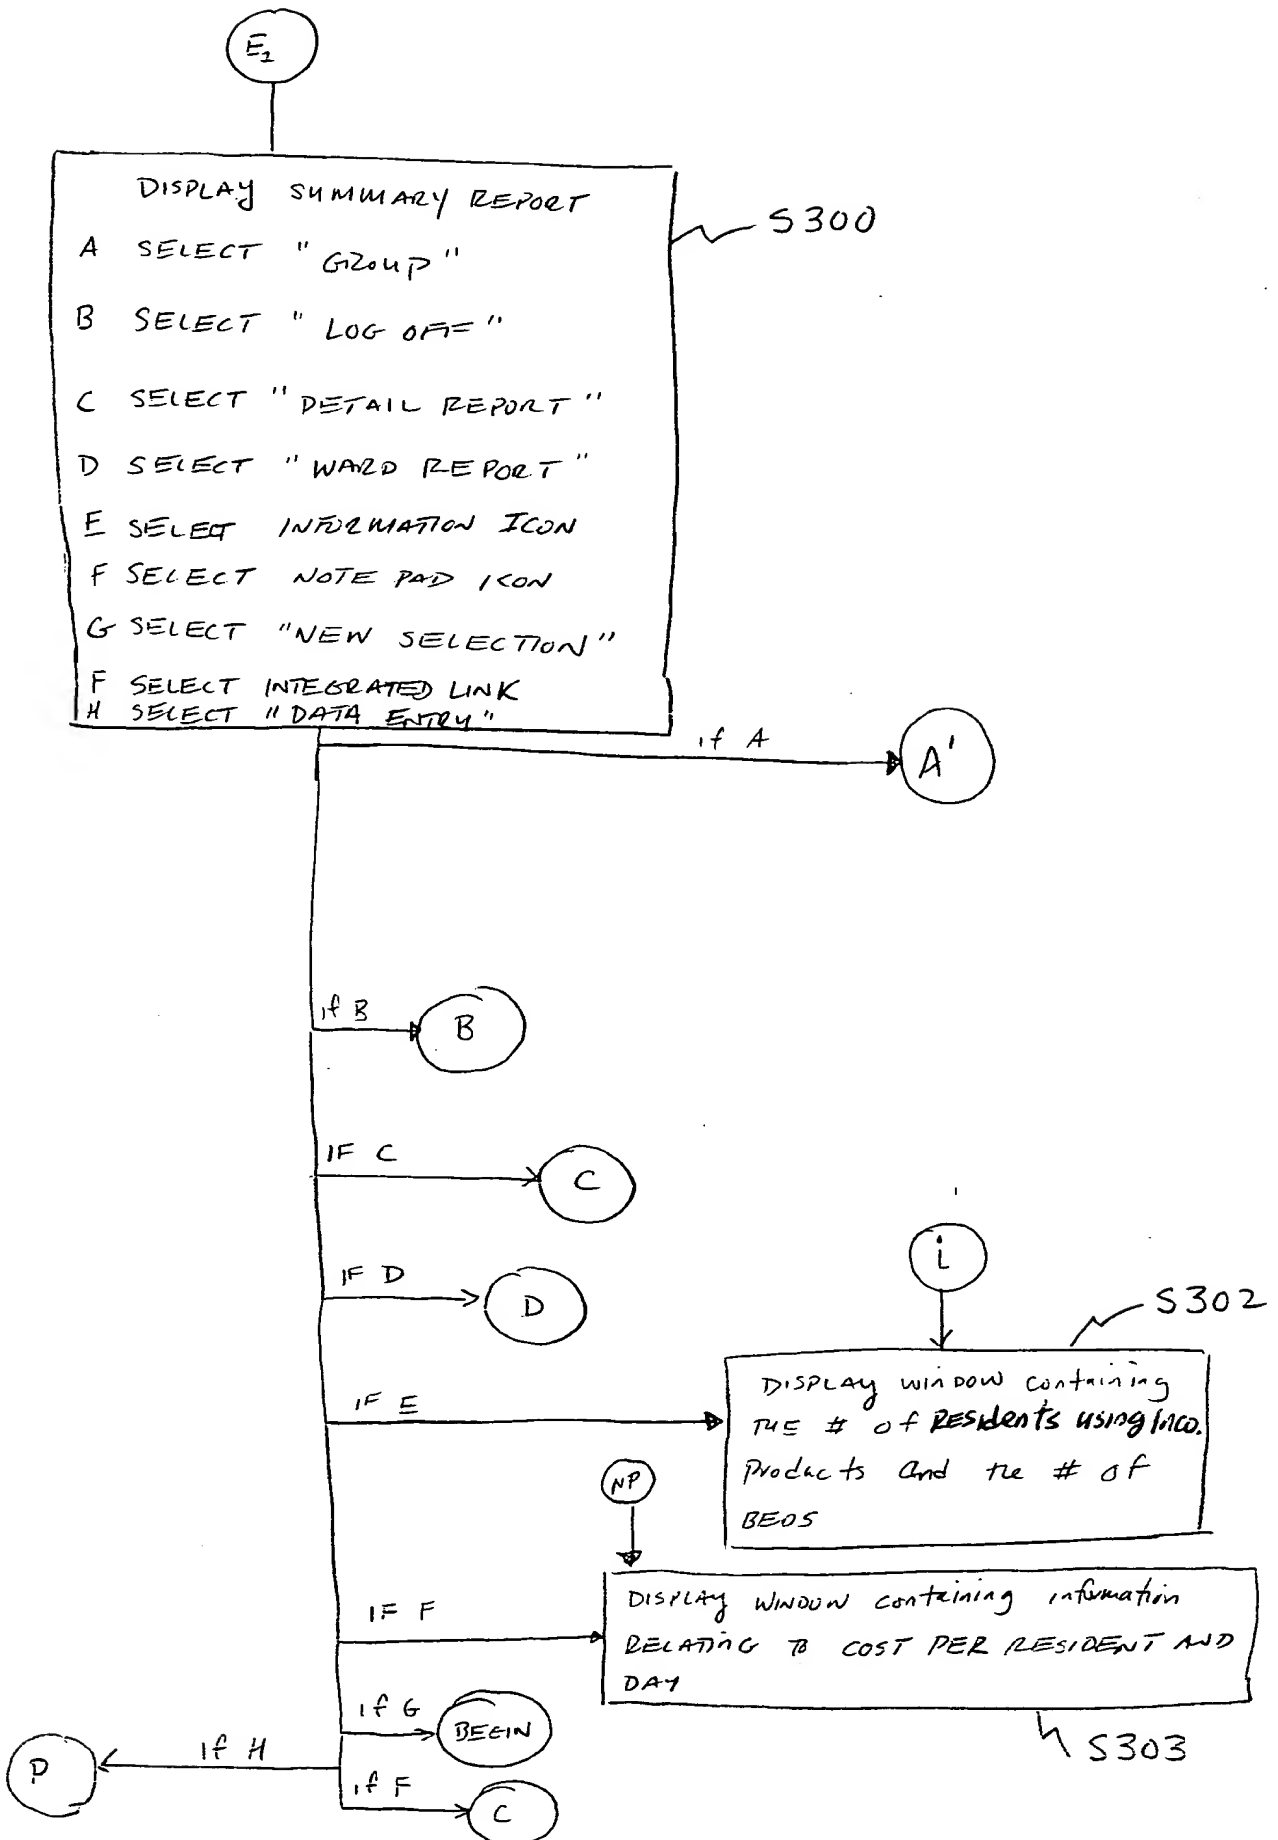 E₂
DISPLAY SUMMARY REPORT
S300
A SELECT "GROUP"
B SELECT "LOG OFF"
C SELECT "DETAIL REPORT"
D SELECT "WARD REPORT"
E SELECT INFORMATION ICON
F SELECT NOTE PAD ICON
G SELECT "NEW SELECTION"
F SELECT INTEGRATED LINK
H SELECT "DATA ENTRY"
if A
A'
if B
B
IF C
C
IF D
D
i
S302
IF E
DISPLAY WINDOW containing
THE # of Residents using Inco.
Products and the # of
BEDS
NP
IF F
DISPLAY WINDOW containing information
RELATING TO COST PER RESIDENT AND
DAY
S303
if G
BEGIN
if H
P
if F
C